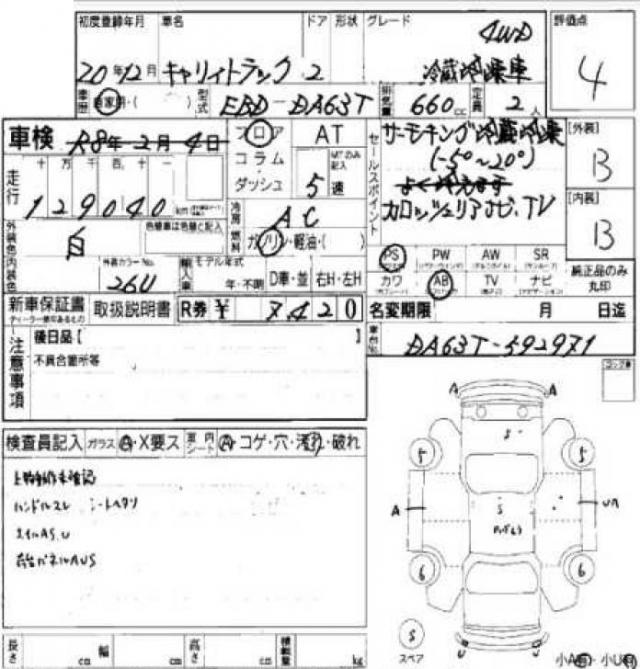 初度登録年月 車名 ドア 形状 グレード 評価点
4WD
20年12月 キャリイトラック 2 冷蔵冷凍車 4
車歴 自家用・( ) 型式 EBD-DA63T 排気量 660cc 定員 2人
車検 R8年2月4日 フロア AT セールスポイント サーモキング冷蔵冷凍 [外装]
コラム・ MTのみ記入 (-5°~20°) B
ダッシュ 5速 よく冷えます
走行 十万千百十一
129040 km 冷房 AC カロッツェリアナビ、TV [内装]
外装色 白 色替車は色替と記入 燃料 ガソリン・軽油・( ) B
PS PW AW SR
内装色 外装カラーNo. 26U 輸入車 モデル年式 年・不明 D車・並 右H・左H カワ AB TV ナビ 純正品のみ丸印
新車保証書 取扱説明書 R券 ¥ 7,420 名変期限 月 日迄
ディーラー捺印あるもの
注意事項 後日品[ ] 車台No. DA63T-592971
不具合箇所等
コーションプレート
検査員記入 ガラス A・X要ス 車内シート A・コゲ・穴・汚れ・破れ
ハンドルスレ シートヘタリ
ホイルAS、U
荷台パネルAUS
A A
S
5 5
A S UA
6 6
S
スペア U U
長さ cm 幅 cm 高さ cm 積載量 kg 小A有・小U有